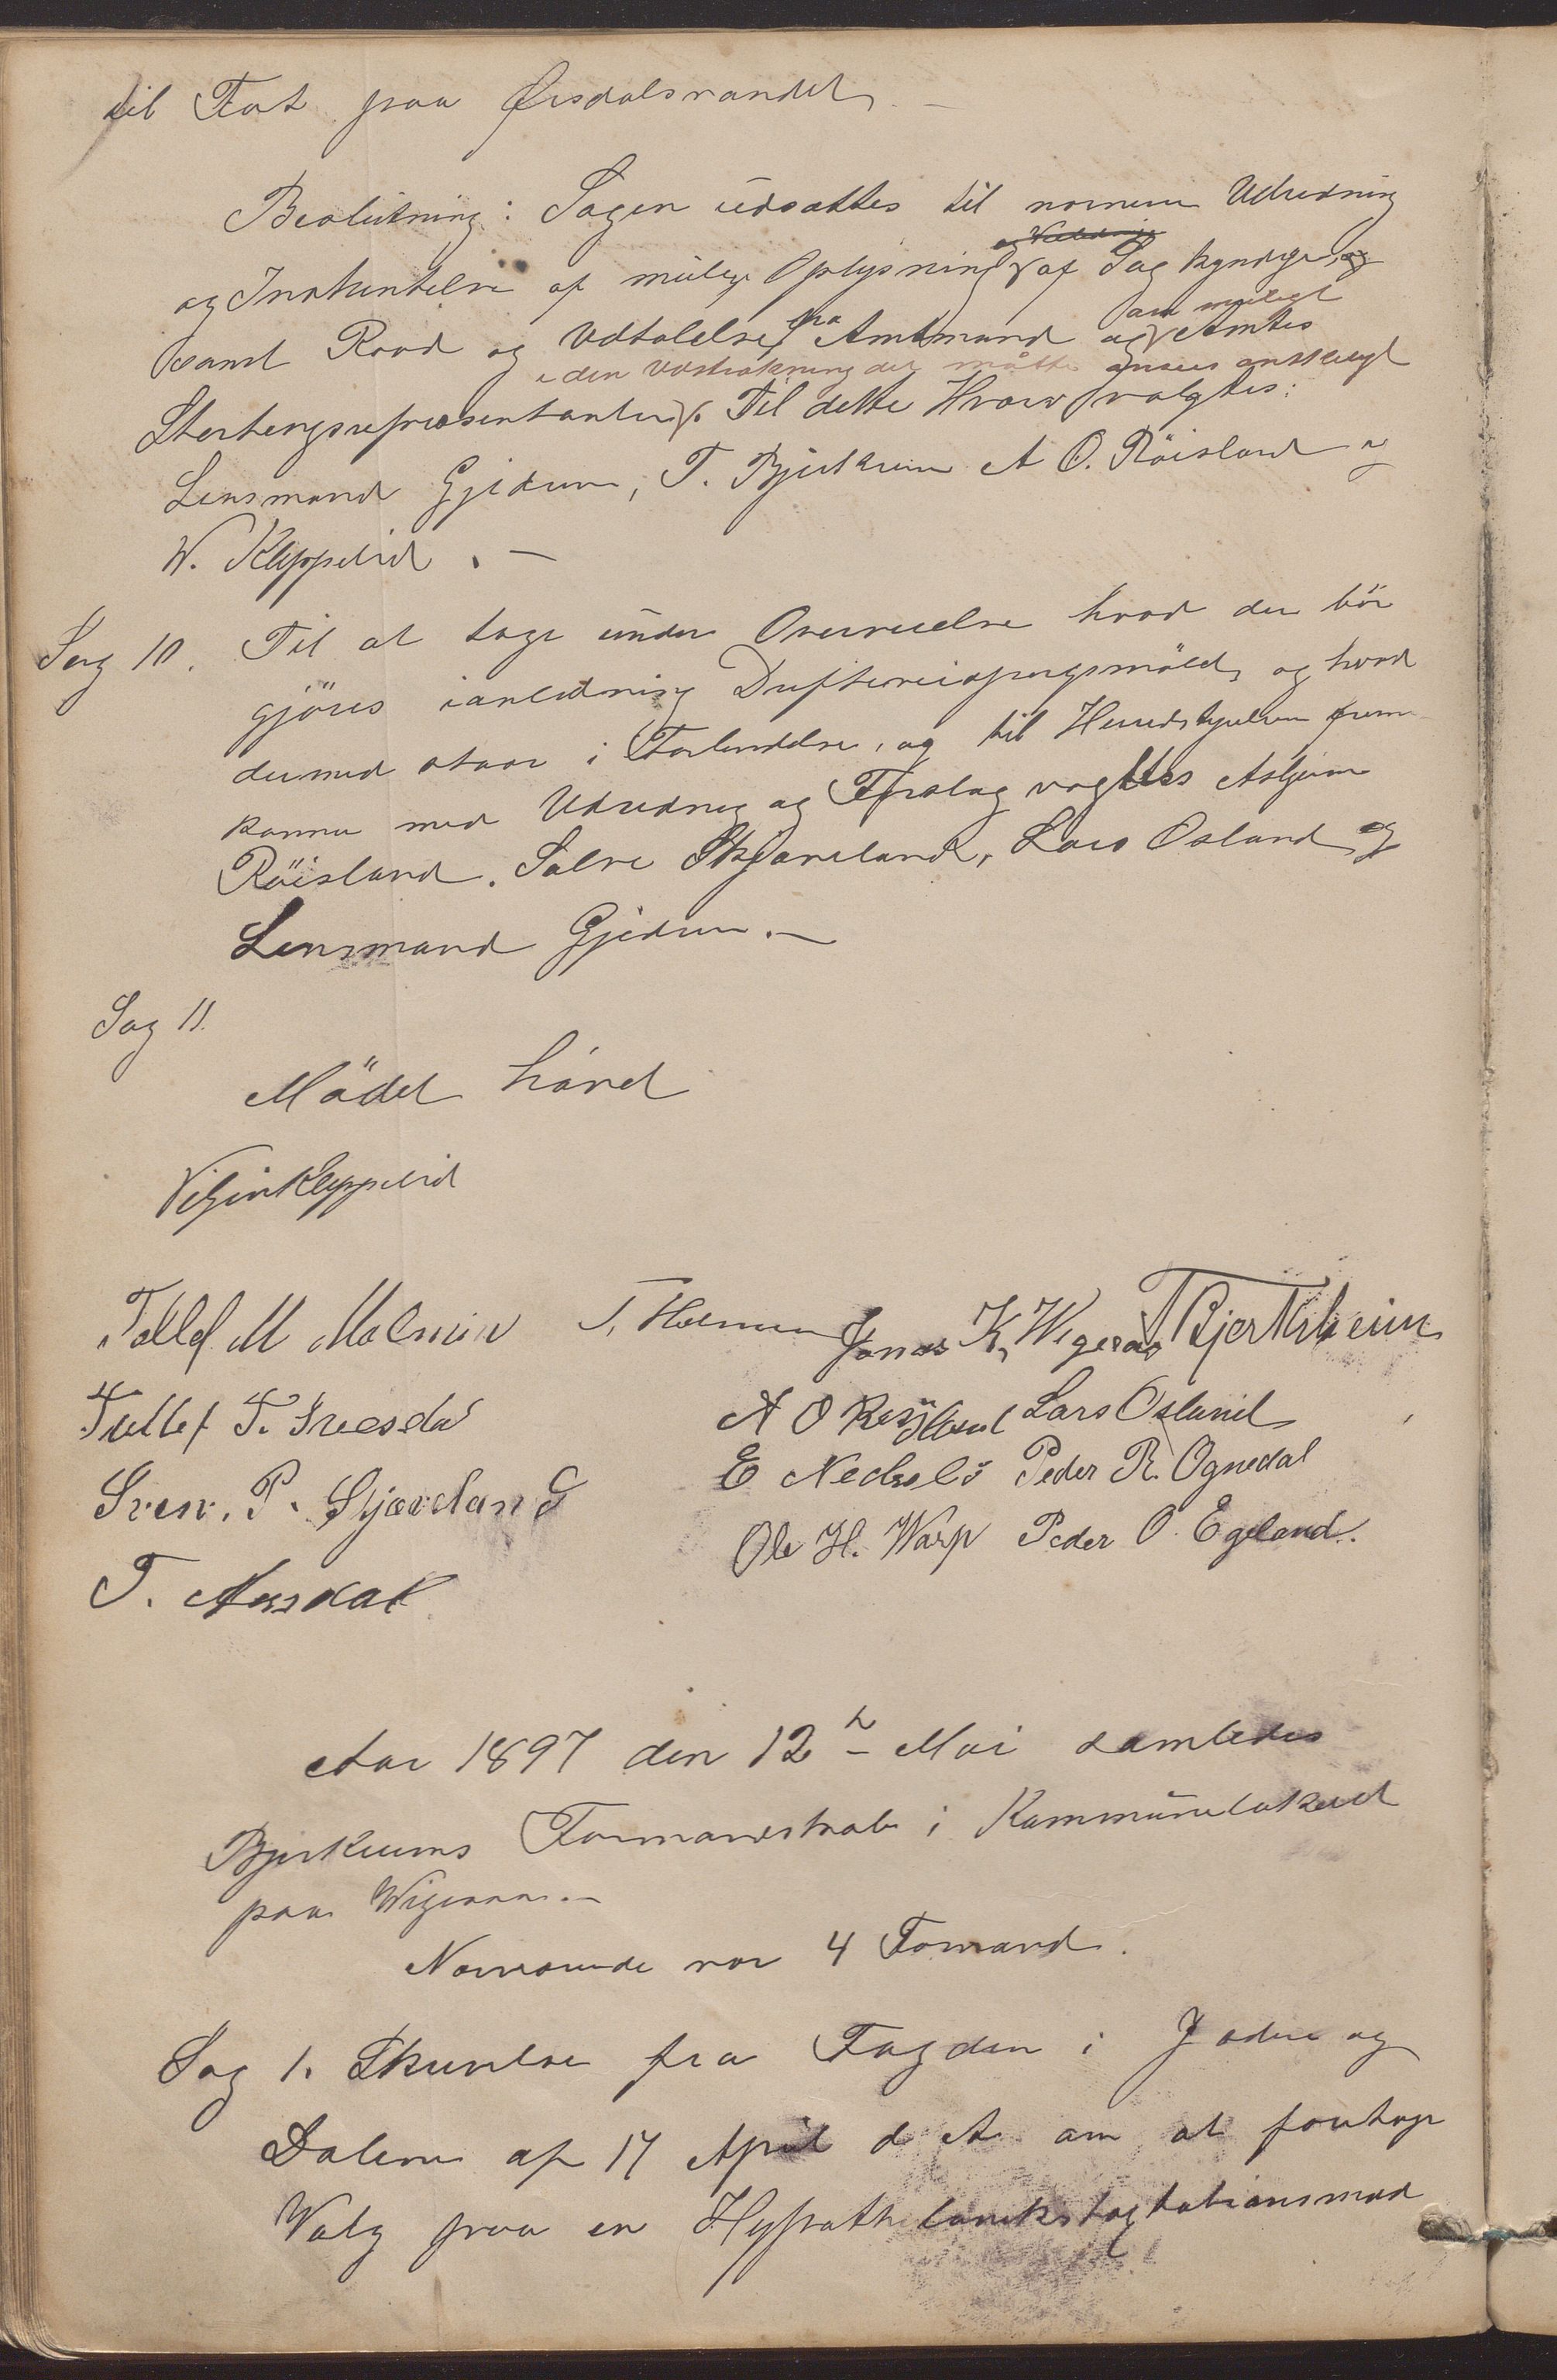 til Fart paa Ørsdalsvandet. —
Beslutning: Sagen udsættes til nærmere Udredning
og Indhentelse af mulige Oplysning af Sagkyndige, og
samt Raad og Udtalelse fra Amtmand og om muligt Amtets
i den Udstrækning det måtte ansees ønskeligt
Stortingsrepræsentanter. Til dette Hverv valgtes:
Lensmand Gjedrem, T. Bjerkrem A O. Röisland og
W. Kleppelid. —
Sag 10. Til at tage under Overveielse hvad der bör
gjöres i anledning Drifteveispörgsmålet, og hvad
dermed staar i Forbindelse, og til Herredstyrelsen frem-
komme med Udredning og Forslag valgtes Asbjörn
Röisland, Salve Skjæveland, Lars Osland og
Lensmand Gjedrem. —
Sag 11.
Mödet hævet
Kleppelid
Tollef M Malmin T. Holmen Jonas K. Wigeraa T Bjerkreim
Tollef T. Ivesdal A O Röisland Lars Osland
Sven. P. Skjæveland E Nedrebö Peder R. Ognedal
Ole H. Warp Peder O. Egeland.
T. Assdal
Aar 1897 den 12te Mai samledes
Bjerkreims Formandskab i Kommunelokalet
paa Wigeraa. —
Nærværende var 4 Formænd.
Sag 1. Skrivelse fra Fogden i Jæderen og
Dalerne af 17 April d A. om at foretage
Valg paa en Hypothekbankstagtationsmand